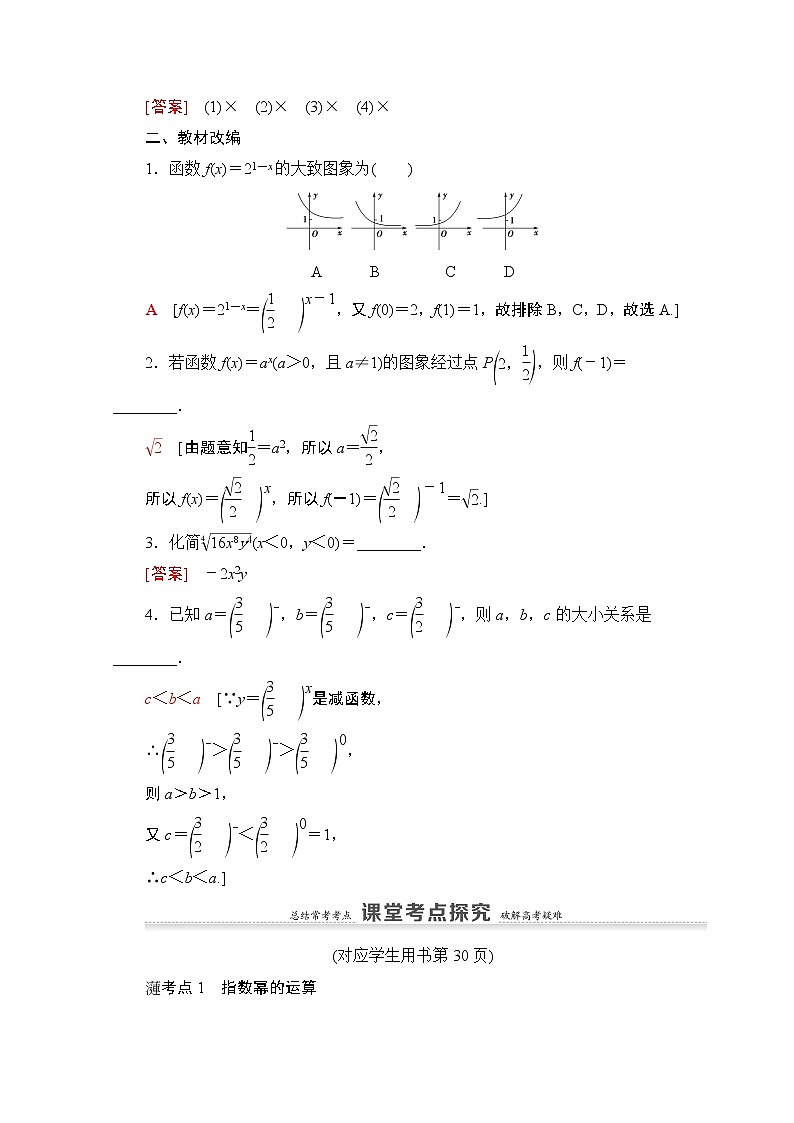 [答案] (1)× (2)× (3)× (4)×
二、教材改编
1．函数 f(x)＝2^{1－x}的大致图象为( )
y y y y
1 1 1 1
O x O x O x O x
A B C D
A [f(x)＝2^{1－x}＝(1/2)^{x－1}，又 f(0)＝2，f(1)＝1，故排除 B，C，D，故选 A.]
2．若函数 f(x)＝a^x(a＞0，且 a≠1)的图象经过点 P(2，1/2)，则 f(－1)＝
________．
√2 [由题意知1/2＝a²，所以 a＝√2/2，
所以 f(x)＝(√2/2)^x，所以 f(－1)＝(√2/2)^{－1}＝√2.]
3．化简⁴√(16x⁸y⁴)(x＜0，y＜0)＝________．
[答案] －2x²y
4．已知 a＝(3/5)^－，b＝(3/5)^－，c＝(3/2)^－，则 a，b，c 的大小关系是
________．
c＜b＜a [∵y＝(3/5)^x是减函数，
∴(3/5)^－＞(3/5)^－＞(3/5)^0，
则 a＞b＞1，
又 c＝(3/2)^－＜(3/2)^0＝1，
∴c＜b＜a.]
总结常考考点 课堂考点探究 破解高考疑难
(对应学生用书第 30 页)
考点 1 指数幂的运算